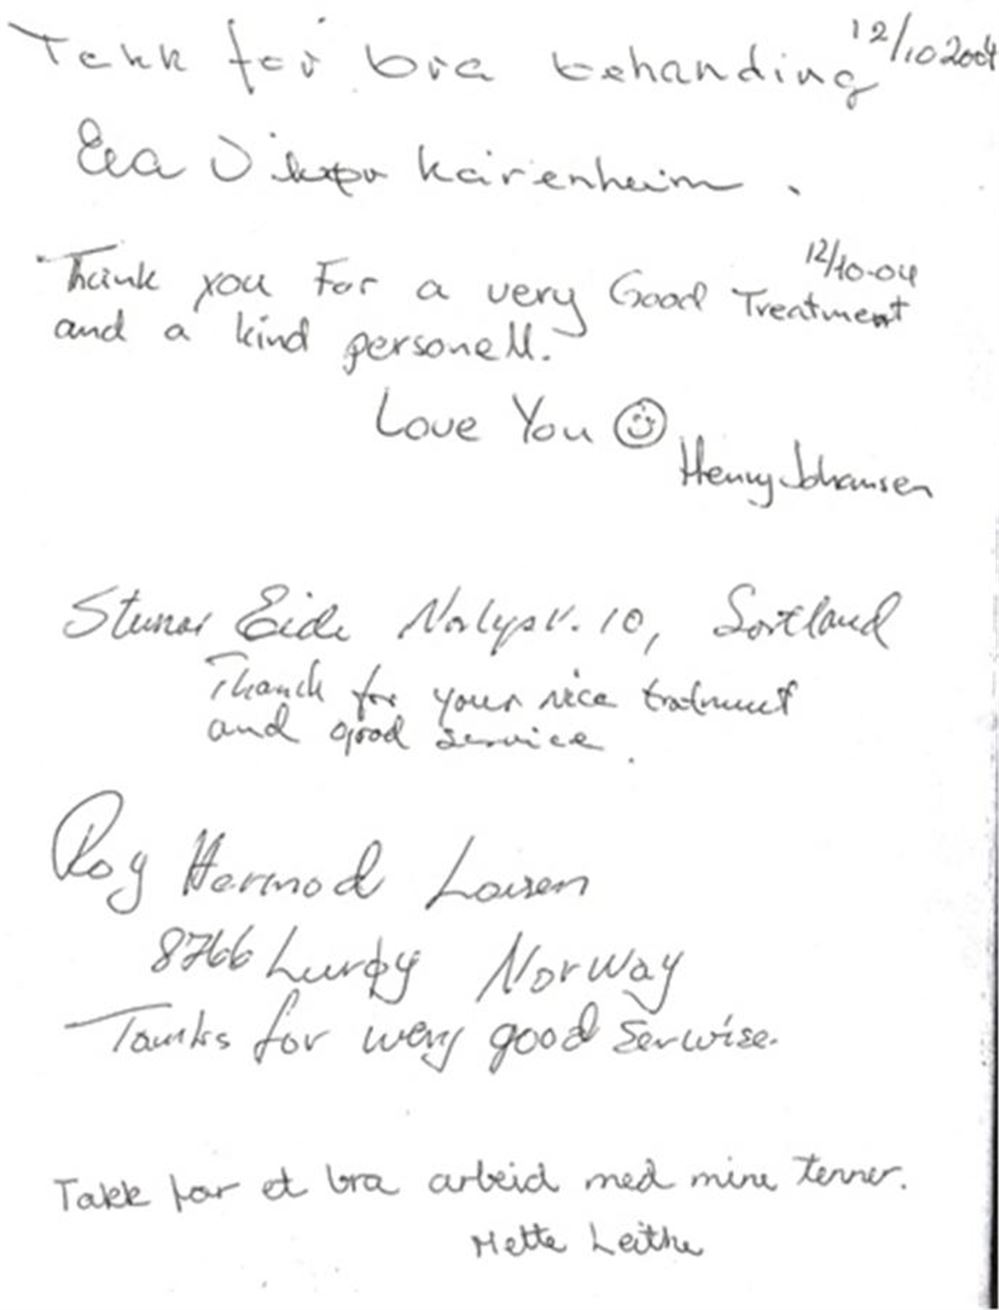 Takk for bra behanding 12/10 2004
Eva Kårenheim.
Thank you For a very Good Treatment 12/10-04
and a kind personell.
Love You ☺
Henry Johansen
Steinar Eide 10, Sortland
Thanck for your nice tratment
and good service.
Roy Hermod Larsen
8766 Lurøy Norway
Tanks for wery good Serwise.
Takk for et bra arbeid med mine tenner.
Mette Leithe